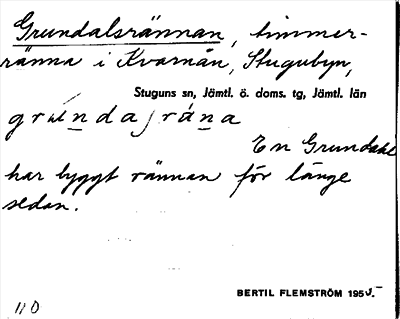 Grundalsrännan, timmer-
ränna i Kvarnån, Stugubyn,
Stuguns sn, Jämtl. ö. doms. tg, Jämtl. län
En Grundahl
har byggt rännan för länge
sedan.
BERTIL FLEMSTRÖM 195